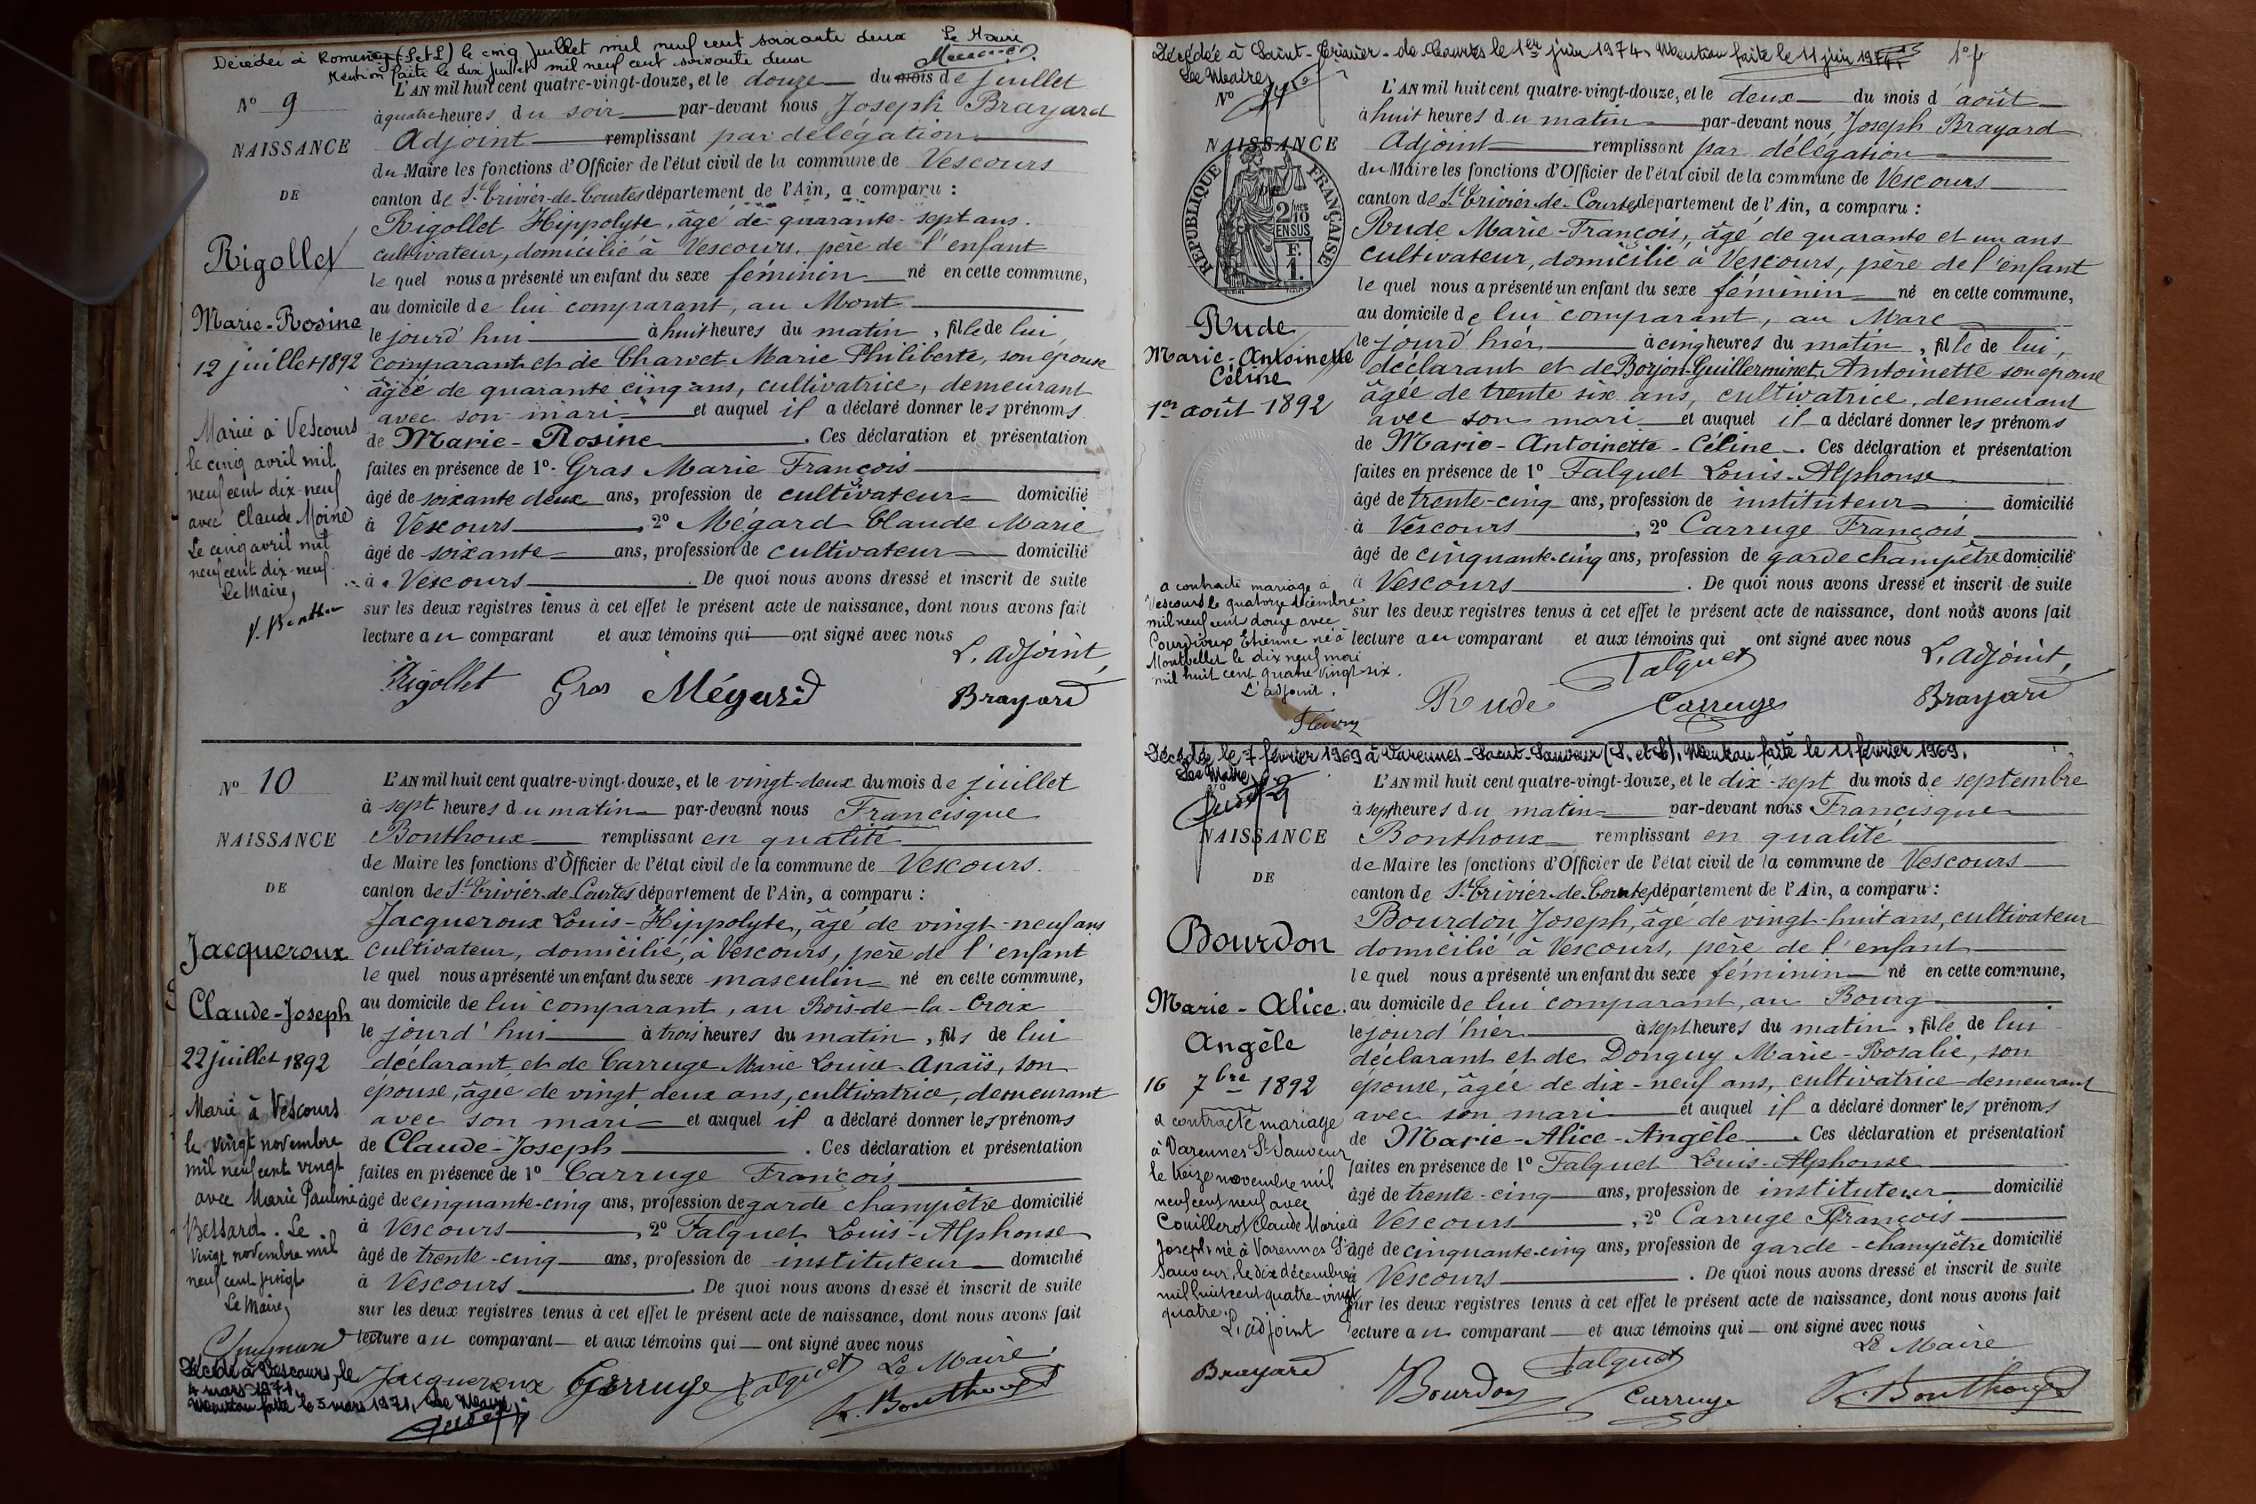 Décédée à Romenay (S et L) le cinq Juillet mil neuf cent soixante deux Le Maire
Mention faite le dix juillet mil neuf cent soixante deux
N° 9
NAISSANCE
DE
Rigollet
Marie-Rosine
12 juillet 1892
Mariée à Vescours
le cinq avril mil
neuf cent dix-neuf
avec Claude Moine
Le cinq avril mil
neuf cent dix-neuf
Le Maire,
L'AN mil huit cent quatre-vingt-douze, et le douze du mois de juillet
à quatre heures du soir par-devant nous Joseph Brayard
Adjoint remplissant par délégation
du Maire les fonctions d'Officier de l'état civil de la commune de Vescours
canton de St Trivier-de-Courtes département de l'Ain, a comparu :
Rigollet Hippolyte, âgé de quarante-sept ans.
cultivateur, domicilié à Vescours, père de l'enfant
le quel nous a présenté un enfant du sexe féminin né en cette commune,
au domicile de lui comparant, au Mont
le jourd'hui à huit heures du matin, fille de lui
comparant et de Charvet Marie Philiberte, son épouse
âgée de quarante cinq ans, cultivatrice, demeurant
avec son mari et auquel il a déclaré donner les prénoms
de Marie-Rosine. Ces déclaration et présentation
faites en présence de 1° Gras Marie François
âgé de soixante deux ans, profession de cultivateur domicilié
à Vescours, 2° Mégard Claude Marie
âgé de soixante ans, profession de cultivateur domicilié
à Vescours. De quoi nous avons dressé et inscrit de suite
sur les deux registres tenus à cet effet le présent acte de naissance, dont nous avons fait
lecture au comparant et aux témoins qui ont signé avec nous
L'adjoint,
Rigollet Gras Mégard Brayard
N° 10
NAISSANCE
DE
Jacqueroux
Claude-Joseph
22 juillet 1892
Marié à Vescours
le vingt novembre
mil neuf cent vingt
avec Marie Pauline
Bessard. Le
vingt novembre mil
neuf cent vingt
Le Maire,
Décédé à Vescours, le
4 mars 1971,
Mention faite le 5 mars 1971, Le Maire,
L'AN mil huit cent quatre-vingt-douze, et le vingt-deux du mois de juillet
à sept heures du matin par-devant nous Francisque
Bonthoux remplissant en qualité
de Maire les fonctions d'Officier de l'état civil de la commune de Vescours.
canton de St Trivier-de-Courtes département de l'Ain, a comparu :
Jacqueroux Louis-Hippolyte, âgé de vingt-neuf ans
cultivateur, domicilié, à Vescours, père de l'enfant
le quel nous a présenté un enfant du sexe masculin né en cette commune,
au domicile de lui comparant, au Bois-de-la-Croix
le jourd'hui à trois heures du matin, fils de lui
déclarant et de Carruge Marie Louise Anaïs, son
épouse, âgée de vingt deux ans, cultivatrice, demeurant
avec son mari et auquel il a déclaré donner les prénoms
de Claude-Joseph. Ces déclaration et présentation
faites en présence de 1° Carruge François
âgé de cinquante-cinq ans, profession de garde champêtre domicilié
à Vescours, 2° Falquet Louis-Alphonse
âgé de trente-cinq ans, profession de instituteur domicilié
à Vescours. De quoi nous avons dressé et inscrit de suite
sur les deux registres tenus à cet effet le présent acte de naissance, dont nous avons fait
lecture au comparant et aux témoins qui ont signé avec nous
Le Maire,
Jacqueroux Carruge Falquet F. Bonthoux
Décédée à Saint-Trivier-de-Courtes le 1er juin 1974. Mention faite le 11 juin 1974.
Le Maire,
N°
NAISSANCE
RÉPUBLIQUE FRANÇAISE
2/10 EN SUS
F.
1.
Rude
Marie-Antoinette
Céline
1er août 1892
a contracté mariage à
Vescours le quatorze décembre
mil neuf cent douze avec
Courdioux Etienne né à
Montbellet le dix neuf mai
mil huit cent quatre vingt six.
L'adjoint,
L'AN mil huit cent quatre-vingt-douze, et le deux du mois d'août
à huit heures du matin par-devant nous Joseph Brayard
Adjoint remplissant par délégation
du Maire les fonctions d'Officier de l'état civil de la commune de Vescours
canton de St Trivier-de-Courtes département de l'Ain, a comparu :
Rude Marie-François, âgé de quarante et un ans
cultivateur, domicilié à Vescours, père de l'enfant
le quel nous a présenté un enfant du sexe féminin né en cette commune,
au domicile de lui comparant, au Marc
le jourd'hier à cinq heures du matin, fille de lui,
déclarant et de Borjon-Guillerminet Antoinette son épouse
âgée de trente six ans, cultivatrice, demeurant
avec son mari et auquel il a déclaré donner les prénoms
de Marie-Antoinette-Céline. Ces déclaration et présentation
faites en présence de 1° Falquet Louis-Alphonse
âgé de trente-cinq ans, profession de instituteur domicilié
à Vescours, 2° Carruge François
âgé de cinquante-cinq ans, profession de garde champêtre domicilié
à Vescours. De quoi nous avons dressé et inscrit de suite
sur les deux registres tenus à cet effet le présent acte de naissance, dont nous avons fait
lecture au comparant et aux témoins qui ont signé avec nous
Falquet L'adjoint,
Rude Carruge Brayard
Décédée le 7 février 1969 à Varennes-Saint-Sauveur (S. et L). Mention faite le 11 février 1969.
Le Maire,
NAISSANCE
DE
Bourdon
Marie-Alice
Angèle
16 7bre 1892
a contracté mariage
à Varennes St Sauveur
le treize novembre mil
neuf cent neuf avec
Couillerot Claude Marie
Joseph né à Varennes St
Sauveur, le dix décembre
mil huit cent quatre-vingt
quatre.
L'adjoint
Brayard
L'AN mil huit cent quatre-vingt-douze, et le dix-sept du mois de septembre
à sept heures du matin par-devant nous Francisque
Bonthoux remplissant en qualité
de Maire les fonctions d'Officier de l'état civil de la commune de Vescours
canton de St Trivier-de-Courtes département de l'Ain, a comparu :
Bourdon Joseph, âgé de vingt-huit ans, cultivateur
domicilié à Vescours, père de l'enfant
le quel nous a présenté un enfant du sexe féminin né en cette commune,
au domicile de lui comparant, au Bourg
le jourd'hier à sept heures du matin, fille de lui
déclarant et de Donguy Marie-Rosalie, son
épouse, âgée de dix-neuf ans, cultivatrice demeurant
avec son mari et auquel il a déclaré donner les prénoms
de Marie-Alice-Angèle. Ces déclaration et présentation
faites en présence de 1° Falquet Louis-Alphonse
âgé de trente-cinq ans, profession de instituteur domicilié
à Vescours, 2° Carruge François
âgé de cinquante-cinq ans, profession de garde-champêtre domicilié
à Vescours. De quoi nous avons dressé et inscrit de suite
sur les deux registres tenus à cet effet le présent acte de naissance, dont nous avons fait
lecture au comparant et aux témoins qui ont signé avec nous
Le Maire
Bourdon Falquet Carruge F. Bonthoux